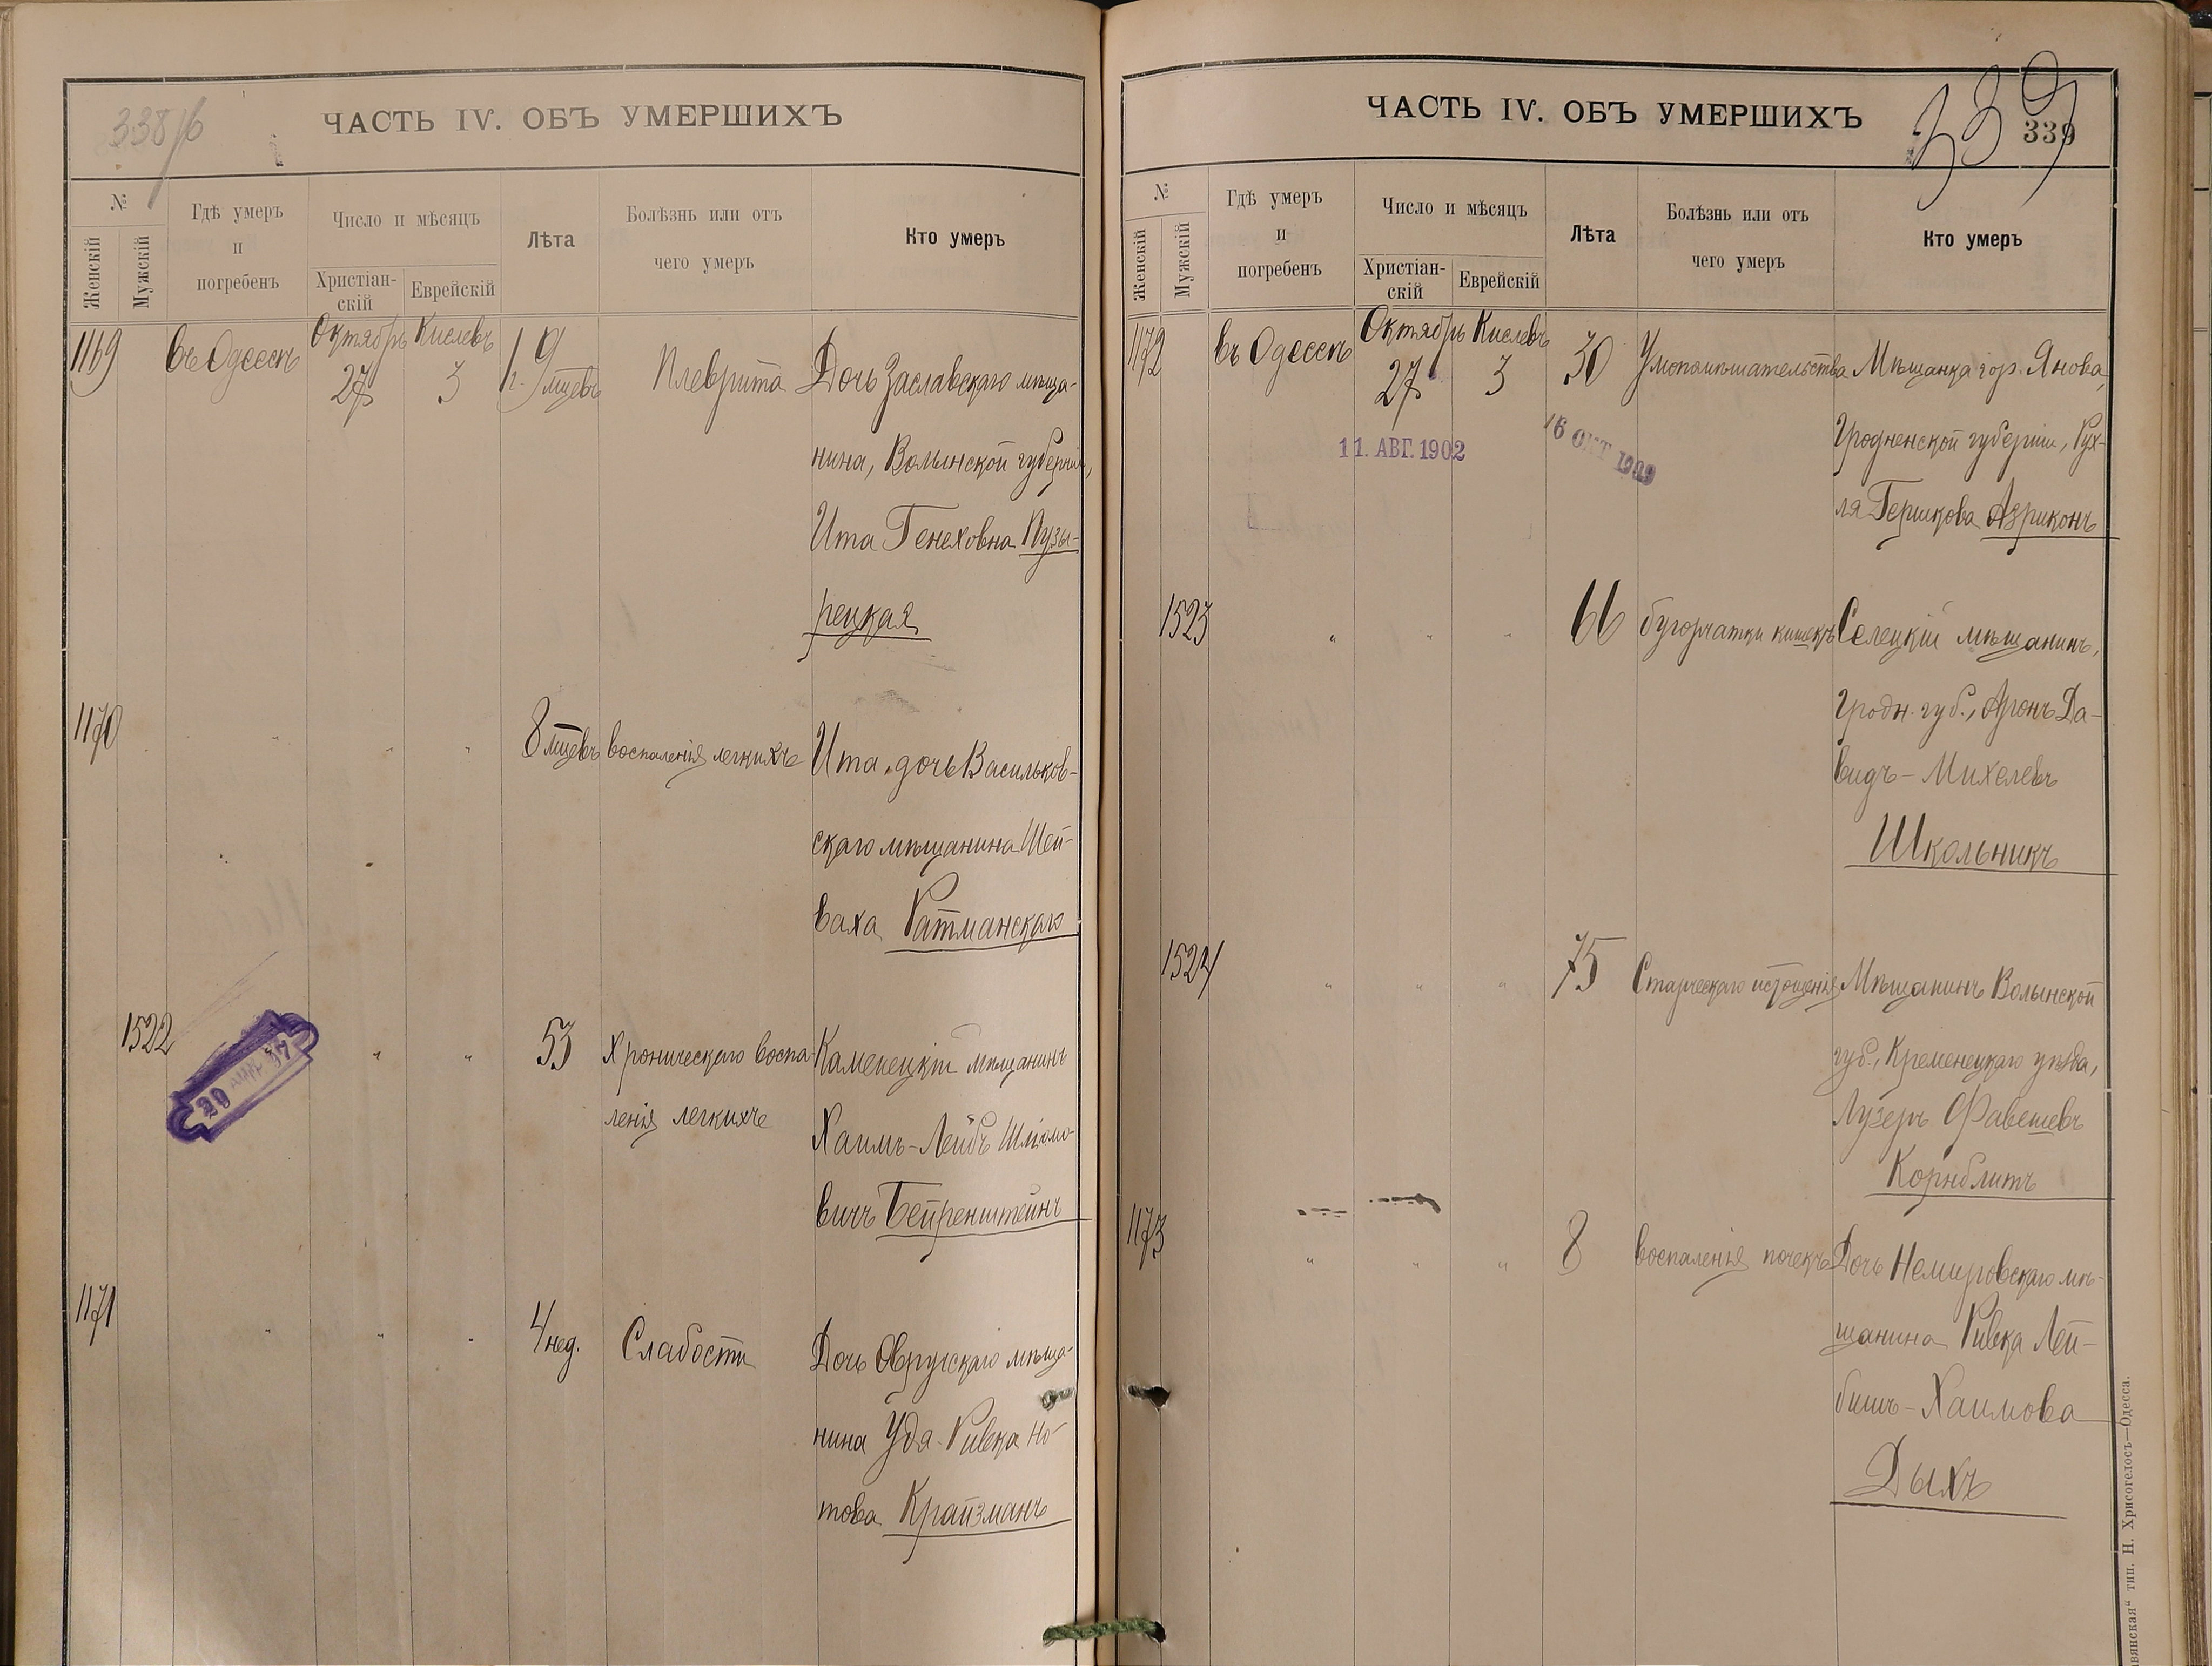 338/б
ЧАСТЬ IV. ОБЪ УМЕРШИХЪ
№
Женскій
Мужскій
Гдѣ умеръ
и
погребенъ
Число и мѣсяцъ
Христіан-
скій
Еврейскій
Лѣта
Болѣзнь или отъ
чего умеръ
Кто умеръ
1169 въ Одессѣ Октябрь 27 Кислевъ 3 1 г. 9 мцевъ Плеврита Дочь Заславскаго мѣща-
нина, Волынской губерніи,
Ита Генеховна Пузы-
рецкая
1170 " " " 8 мцевъ воспаленія легкихъ Ита, дочь Васильков-
скаго мѣщанина Шей-
ваха Ратманскаго
1522 " " 53 Хроническаго воспа- Каменецкій мѣщанинъ
ленія легкихъ Хаимъ-Лейбъ Шліомо-
вичъ Бейренштейнъ
20
97
1171 " " " 4 нед. Слабости Дочь Овручскаго мѣща-
нина Удя-Ривка Но-
това Крайзманъ
ЧАСТЬ IV. ОБЪ УМЕРШИХЪ
339
339
№
Женскій
Мужскій
Гдѣ умеръ
и
погребенъ
Число и мѣсяцъ
Христіан-
скій
Еврейскій
Лѣта
Болѣзнь или отъ
чего умеръ
Кто умеръ
1172 въ Одессѣ Октябрь 27 Кислевъ 3 30 Умопомѣшательства Мѣщанка гор. Янова,
Гродненской губерніи, Рух-
ля Гершкова Азриконъ
11. АВГ. 1902
16 ОКТ 1909
1523 " " " 66 бугорчатки кишекъ Селецкій мѣщанинъ,
Гродн. губ., Аронъ Да-
видъ-Михелевъ
Школьникъ
1524 " " " 75 Старческаго истощенія Мѣщанинъ Волынской
губ., Кременецкаго уѣзда,
Лузеръ Фавешевъ
Корнблитъ
1173 " " " 8 воспаленія почекъ Дочь Немировскаго мѣ-
щанина Ривка Лей-
бишъ-Хаимова
Дыхъ
вянская“ тип. Н. Хрисогелосъ—Одесса.